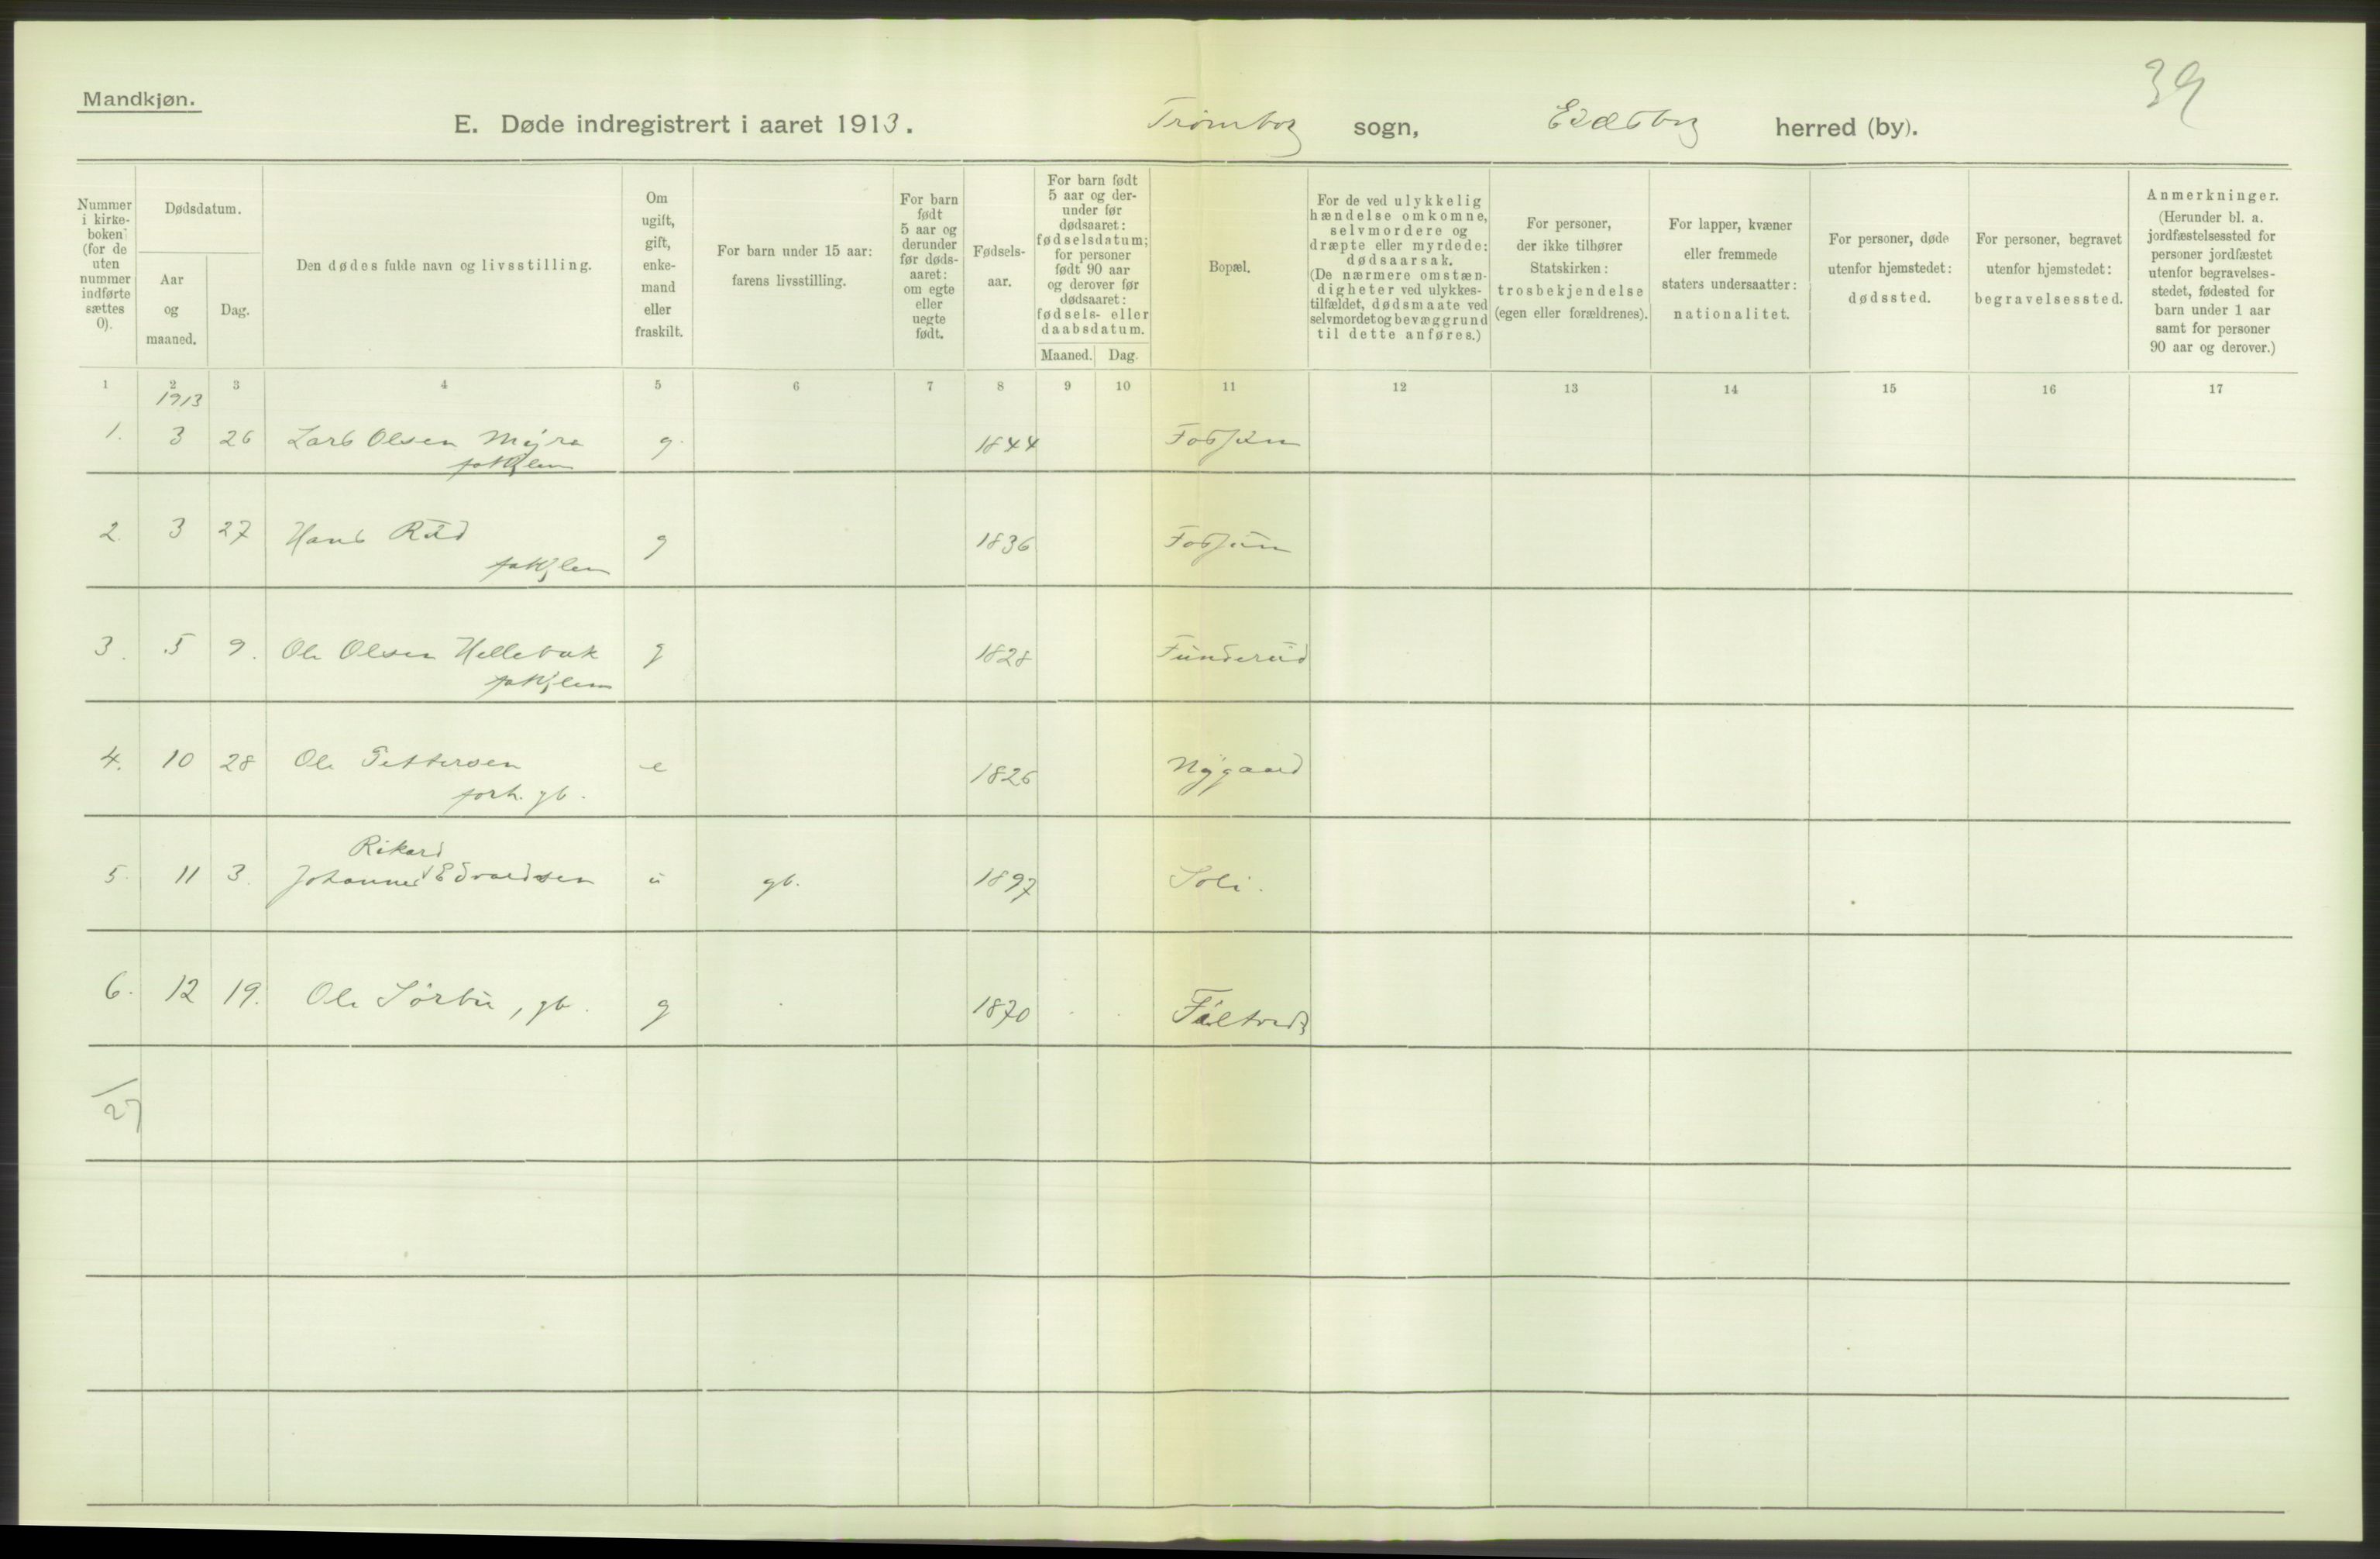 39
Mandkjøn.
E. Døde indregistrert i aaret 1913. Trømborg sogn, Eidsberg herred (by).
Nummer i kirkeboken (for de uten nummer indførte sættes 0).
Dødsdatum.
Aar og maaned.
Dag.
Den dødes fulde navn og livsstilling.
Om ugift, gift, enkemand eller fraskilt.
For barn under 15 aar: farens livsstilling.
For barn født 5 aar og derunder før dødsaaret: om egte eller uegte født.
Fødselsaar.
For barn født 5 aar og derunder før dødsaaret: fødselsdatum; for personer født 90 aar og derover før dødsaaret: fødsels- eller daabsdatum.
Maaned. Dag.
Bopæl.
For de ved ulykkelig hændelse omkomne, selvmordere og dræpte eller myrdede: dødsaarsak. (De nærmere omstændigheter ved ulykkestilfældet, dødsmaate ved selvmordet og bevæggrund til dette anføres.)
For personer, der ikke tilhører Statskirken: trosbekjendelse (egen eller forældrenes).
For lapper, kvæner eller fremmede staters undersaatter: nationalitet.
For personer, døde utenfor hjemstedet: dødssted.
For personer, begravet utenfor hjemstedet: begravelsessted.
Anmerkninger. (Herunder bl. a. jordfæstelsessted for personer jordfæstet utenfor begravelsesstedet, fødested for barn under 1 aar samt for personer 90 aar og derover.)
1 2 3 4 5 6 7 8 9 10 11 12 13 14 15 16 17
1913
1. 3 26 Lars Olsen Myra g. 1844 Fossum
fattiglem
2. 3 27 Hans Rud g 1836 Fossum
fattiglem
3. 5 9. Ole Olsen Hellebæk g 1828 Funderud
fattiglem
4. 10 28 Ole Pettersen e 1826 Nygaard
forh. gb.
Rikard
5. 11 3. Johannes Edvardsen u gb. 1897 Soli.
6. 12 19. Ole Sørbu, gb. g 1870
27